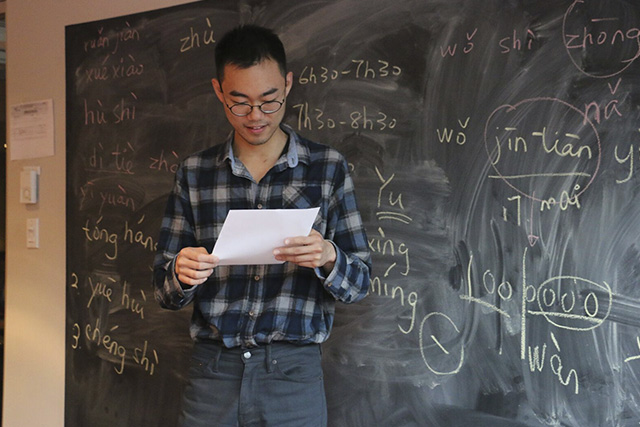 ruǎn jiàn
xué xiào
hù shì
dì tiě
yī yuàn
tóng háng
2. yuē huì
3. chéng shì
zhù
6h30-7h30
7h30-8h30
Yu
xìng
míng
wǒ shì zhōng
nǎ
wǒ jīn-tiān
17
100 0000
wàn